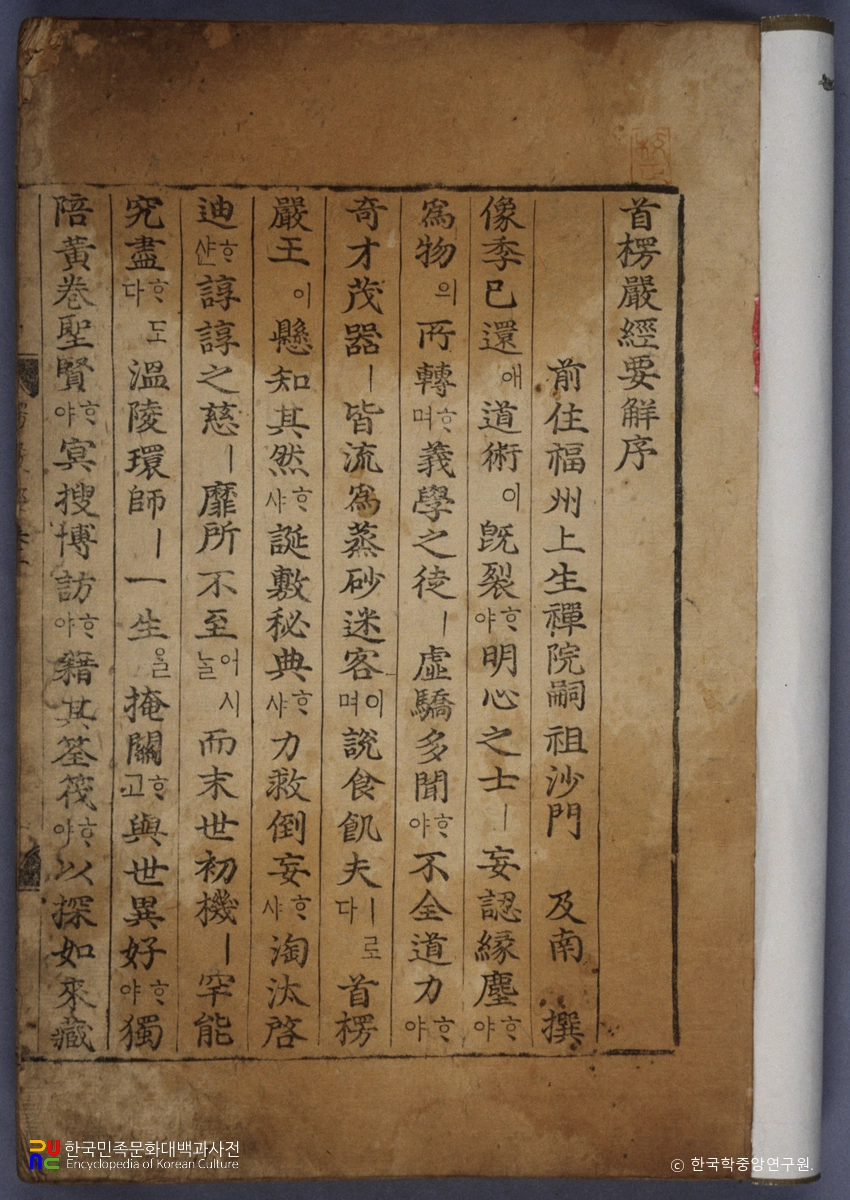 首楞嚴經要觧序
前住福州上生禪院嗣祖沙門 及南 撰
像季已還애道術이旣裂ᄒᆞ야明心之士ㅣ妄認緣塵ᄒᆞ야
爲物의所轉ᄒᆞ며義學之徒ㅣ虛驕多聞ᄒᆞ야不全道力ᄒᆞ야
奇才茂器ㅣ皆流爲蒸砂迷客이며說食飢夫ㅣ로다首楞
嚴王이懸知其然ᄒᆞ샤誕敷秘典ᄒᆞ샤力救倒妄ᄒᆞ샤淘汰啓
迪ᄒᆞ샨諄諄之慈ㅣ靡所不至어시놀而末世初機ㅣ罕能
究盡ᄒᆞ도다溫陵環師ㅣ一生ᄋᆞᆯ掩關ᄒᆞ고與世異好ᄒᆞ야獨
陪黃卷聖賢ᄒᆞ야冥搜博訪ᄒᆞ야籍其筌筏ᄒᆞ야以探如來藏
한국민족문화대백과사전
Encyclopedia of Korean Culture
© 한국학중앙연구원.